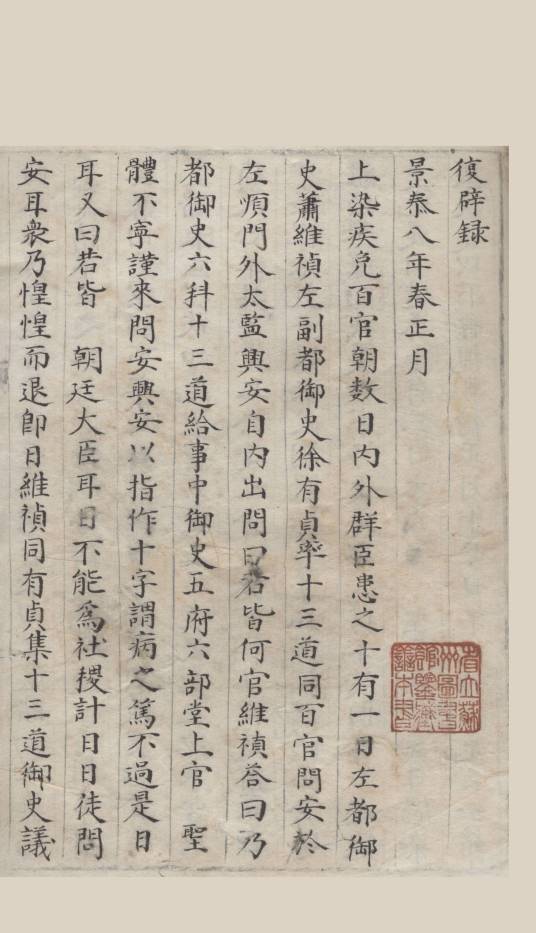 復辟録
景泰八年春正月
上染疾免百官朝数日内外群臣患之十有一日左都御
史蕭維禎左副都御史徐有貞率十三道同百官問安於
左順門外太監興安自内出問曰若皆何官維禎答曰乃
都御史六科十三道給事中御史五府六部堂上官 聖
體不寧謹來問安興安以指作十字謂病之篤不過是日
耳又曰若皆 朝廷大臣耳目不能爲社稷計日日徒問
安耳衆乃惶惶而退卽日維禎同有貞集十三道御史議